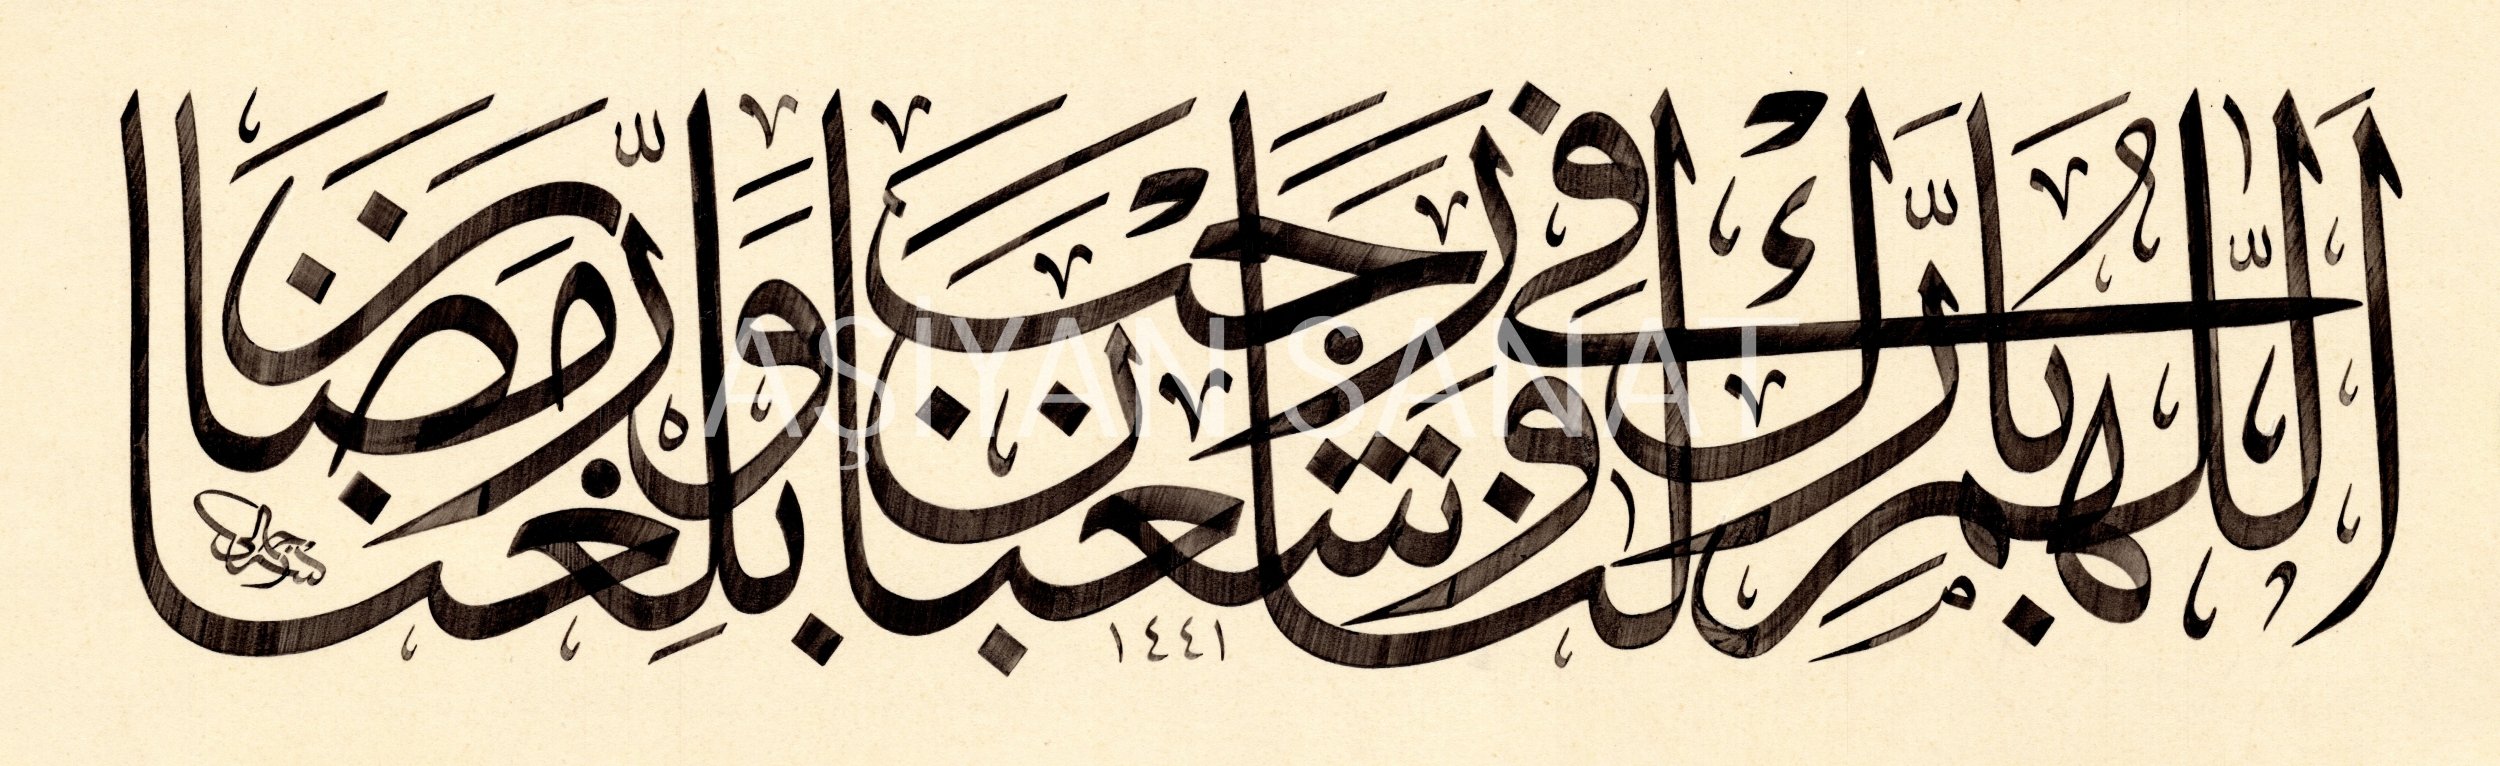 اللّٰهم بارك لنا في رجب وشعبان وبلغنا رمضان
١٤٤١
AŞİYAN SANAT